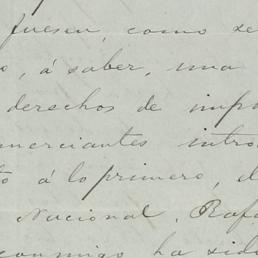 fuesen, como se
á saber, una
derechos de imp
merciantes intro
á lo primero, el
Nacional, Rafa
conmigo ha sido